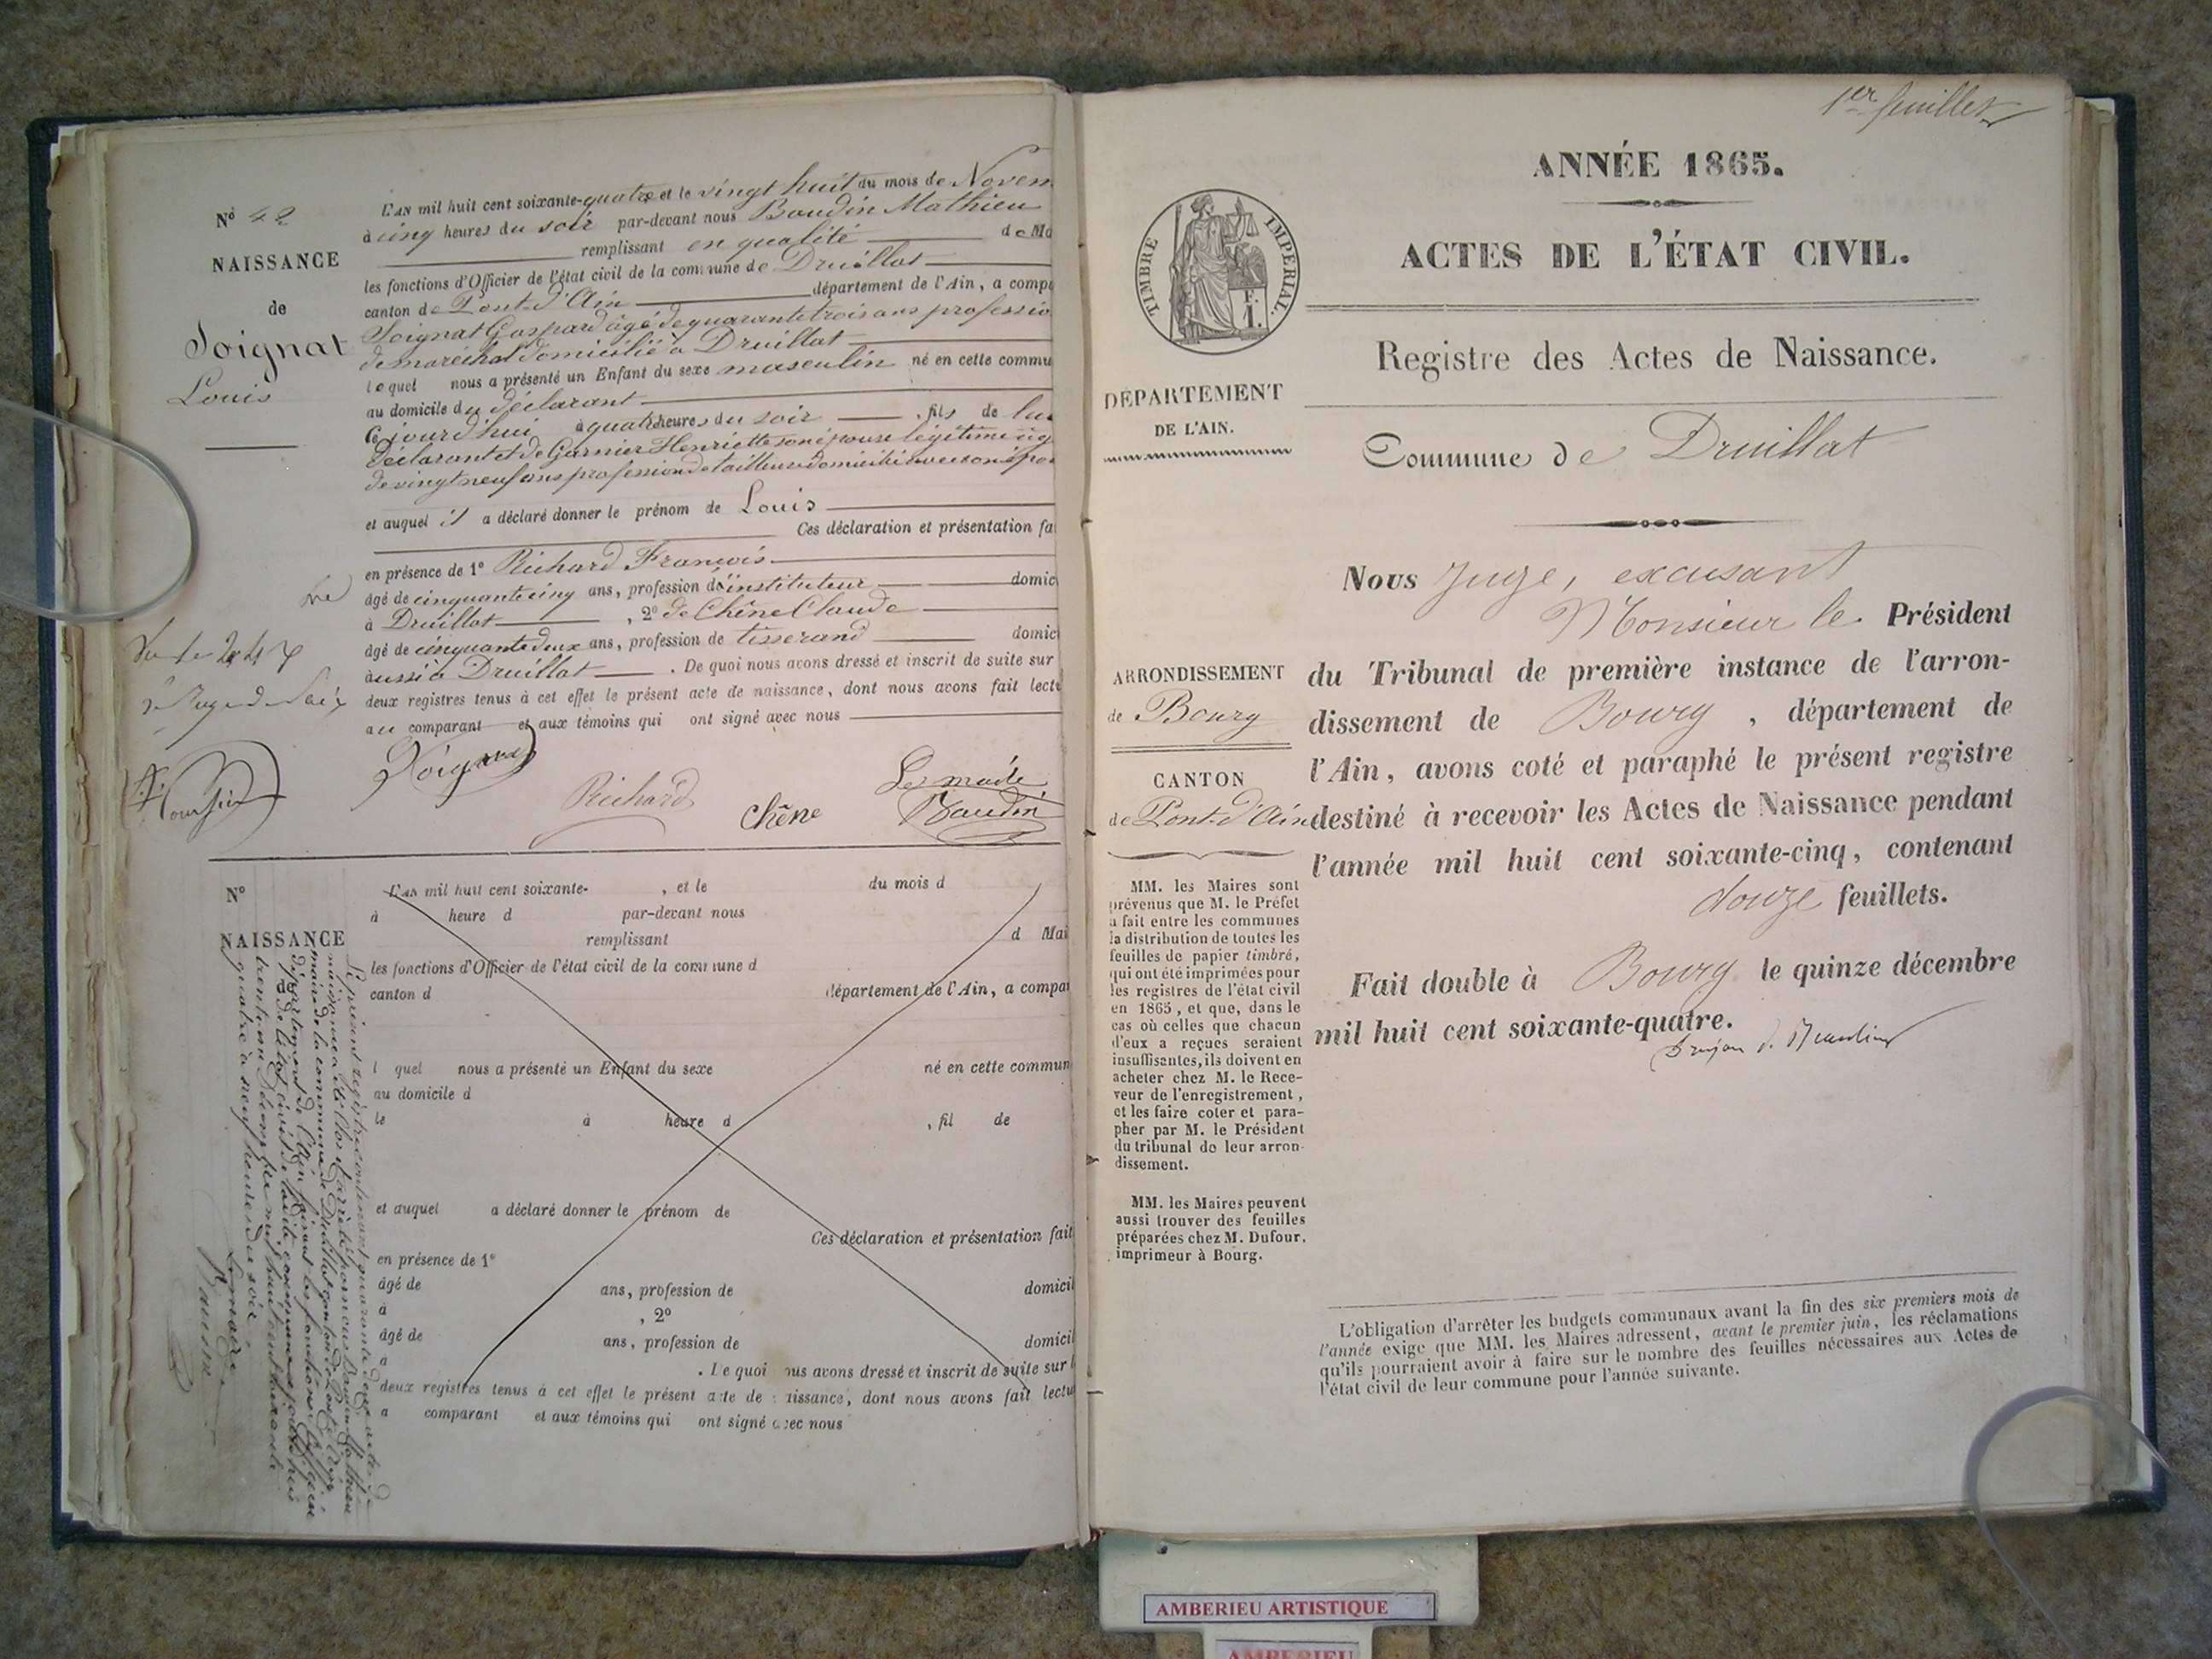 Nº 42
NAISSANCE
de
Soignat
Louis
L'AN mil huit cent soixante-quatre et le vingt huit du mois de Novem
à cinq heures du soir par-devant nous Baudin Mathieu
remplissant en qualité de Ma
les fonctions d'Officier de l'état civil de la commune de Druillat
canton de Pont-d'Ain département de l'Ain, a compa
Soignat Gaspard âgé de quarante trois ans professio
de maréchal domicilié à Druillat
lequel nous a présenté un Enfant du sexe masculin né en cette commu
au domicile du déclarant
Ce jourd'hui à quatre heures du soir , fils de lui
déclarant et de Garnier Henriette son épouse légitime âg
de vingt neuf ans profession de tailleuse domiciliée avec son épou
et auquel il a déclaré donner le prénom de Louis
Ces déclaration et présentation fa
en présence de 1º Richard François
âgé de cinquante cinq ans, profession d'instituteur domic
à Druillat , 2º de Chêne Claude
âgé de cinquante deux ans, profession de tisserand domic
aussi à Druillat . De quoi nous avons dressé et inscrit de suite sur
deux registres tenus à cet effet le présent acte de naissance, dont nous avons fait lectu
au comparant et aux témoins qui ont signé avec nous
Soignat
Richard
Chêne
Le maire
Baudin
Nº
NAISSANCE
de
L'AN mil huit cent soixante- , et le du mois d
à heure d par-devant nous
remplissant d Mai
les fonctions d'Officier de l'état civil de la commune d
canton d département de l'Ain, a compar
l quel nous a présenté un Enfant du sexe né en cette commun
au domicile d
le à heure d , fil de
et auquel a déclaré donner le prénom de
Ces déclaration et présentation fait
en présence de 1º
âgé de ans, profession de domicil
à , 2º
âgé de ans, profession de domicil
à . De quoi nous avons dressé et inscrit de suite sur l
deux registres tenus à cet effet le présent acte de naissance, dont nous avons fait lectu
a comparant et aux témoins qui ont signé avec nous
Le présent registre contenant quarante deux actes de
naissance a été clos et arrêté par nous Baudin Mathieu
maire de la commune de Druillat canton de Pont-d'Ain
département de l'Ain faisant les fonctions d'officier
de l'état civil de ladite commune aujourd'hui
trente un décembre mil huit cent soixante
quatre à neuf heures du soir
Le maire
Baudin
1er feuillet
ANNÉE 1865.
ACTES DE L'ÉTAT CIVIL.
TIMBRE IMPÉRIAL.
F.
1.
Registre des Actes de Naissance.
DÉPARTEMENT
DE L'AIN.
Commune de Druillat
ARRONDISSEMENT
de Bourg
CANTON
de Pont-d'Ain
MM. les Maires sont
prévenus que M. le Préfet
a fait entre les communes
la distribution de toutes les
feuilles de papier timbré,
qui ont été imprimées pour
les registres de l'état civil
en 1865, et que, dans le
cas où celles que chacun
d'eux a reçues seraient
insuffisantes, ils doivent en
acheter chez M. le Rece-
veur de l'enregistrement,
et les faire coter et para-
pher par M. le Président
du tribunal de leur arron-
dissement.
MM. les Maires peuvent
aussi trouver des feuilles
préparées chez M. Dufour,
imprimeur à Bourg.
Nous Juge, excusant
Monsieur le Président
du Tribunal de première instance de l'arron-
dissement de Bourg , département de
l'Ain, avons coté et paraphé le présent registre
destiné à recevoir les Actes de Naissance pendant
l'année mil huit cent soixante-cinq, contenant
douze feuillets.
Fait double à Bourg le quinze décembre
mil huit cent soixante-quatre.
L'obligation d'arrêter les budgets communaux avant la fin des six premiers mois de
l'année exige que MM. les Maires adressent, avant le premier juin, les réclamations
qu'ils pourraient avoir à faire sur le nombre des feuilles nécessaires aux Actes de
l'état civil de leur commune pour l'année suivante.
AMBERIEU ARTISTIQUE
AMBERIEU